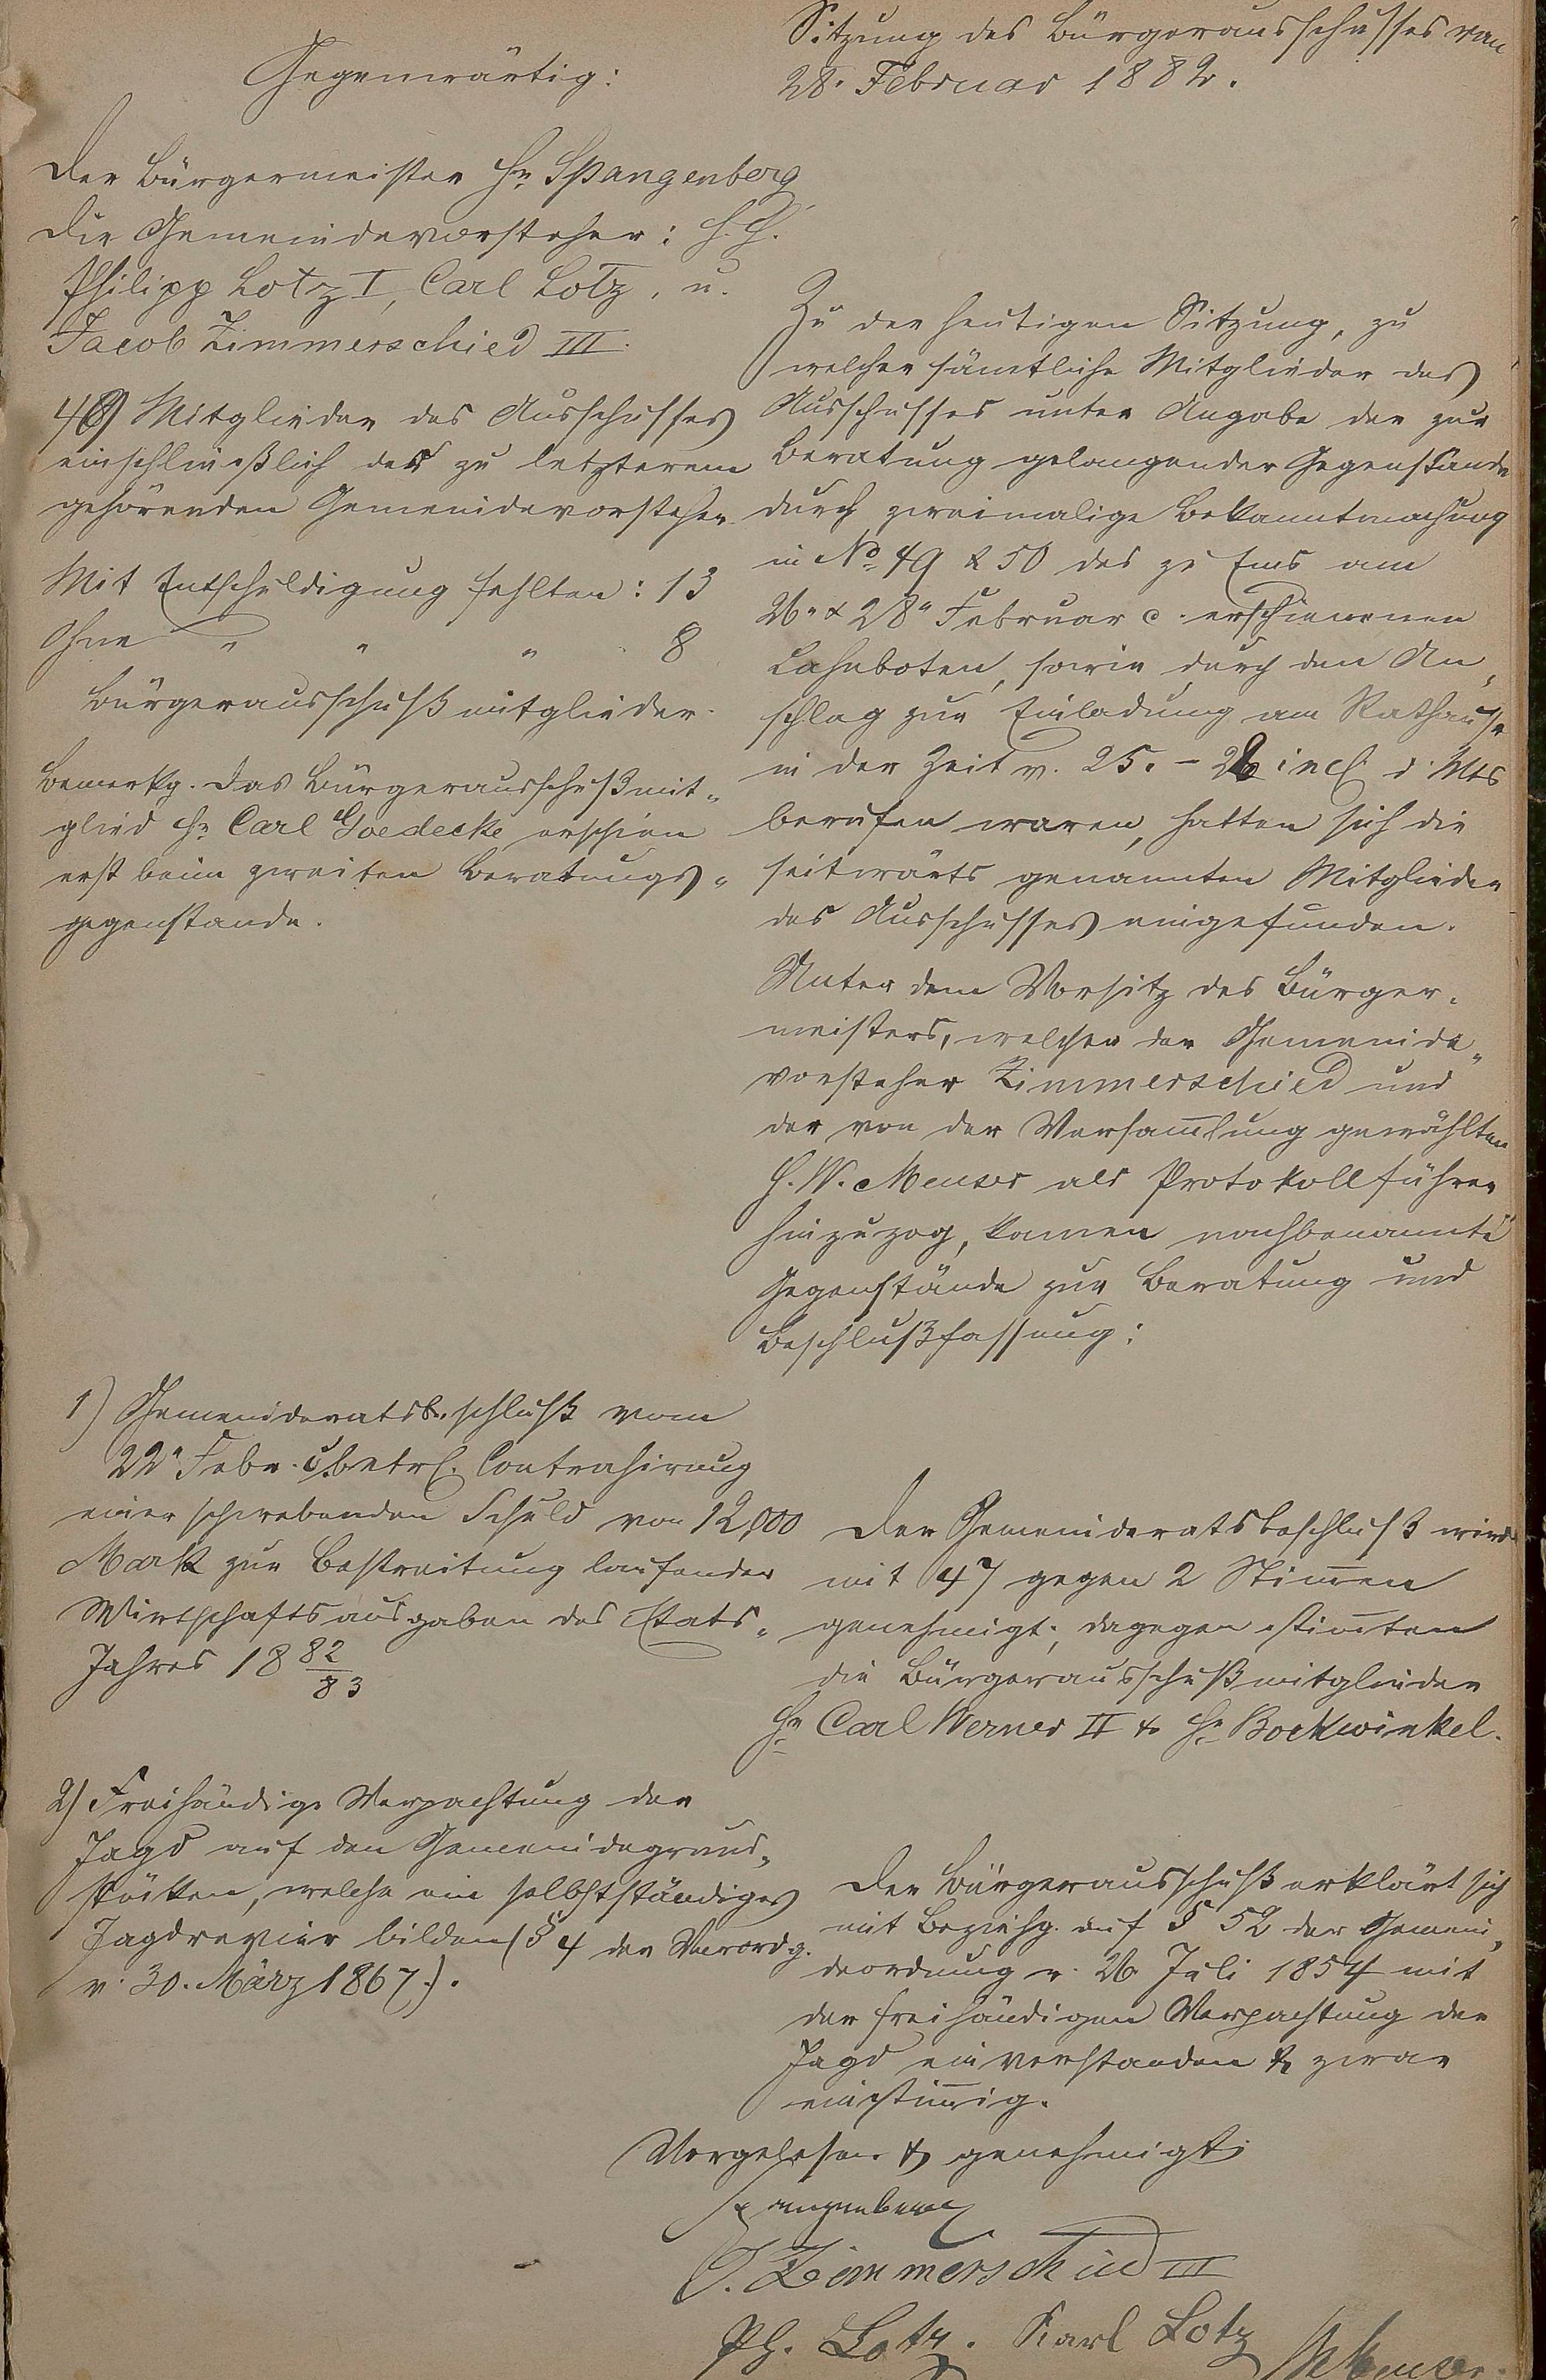 Gegenwärtig:
Der Bürgermeister Hr Spangenberg
Die Gemeindevorsteher: H. H.
Philipp Lotz I, Carl Lotz, u.
Jacob Zimmerschied III.
Mitglieder des Ausschusses
einschließlich der zu letzterem
gehörenden Gemeindevorsteher
Mit Entschuldigung fehlten: 13
Ohne " " " 8
Bürgerausschußmitglieder.
Bemerkg. Das Bürgerausschußmit-
glied Hr Carl Goedecke erschien
erst beim zweiten Beratungs-
gegenstande.
Sitzung des Bürgerausschusses von
28. Februar 1882.
Zu der heutigen Sitzung, zu
welcher sämtliche Mitglieder des
Ausschusses unter Angabe der zur
Beratung gelangender Gegenstände
durch zweimalige Bekanntmachung
in No. 49 & 50 des zu Ems am
26" & 28" Februar c. erschienenen
Lahnboten, sowie durch den An-
schlag zur Einladung am Rathause
in der Zeit v. 25. - 28 incl. d. Mts
berufen waren, hatten sich die
seitwärts genannten Mitglieder
des Ausschusses eingefunden.
Unter dem Vorsitz des Bürger-
meisters, welcher der Gemeinde-
vorsteher Zimmerschied und
der von der Versam̅lung gewählten
H. W. Menser als Protokollführer
hinzuzog, kamen nachbenannte
Gegenstände zur Beratung und
Beschlußfassung:
1) Gemeinderatsbeschluß vom
22" Febr. c. betrf. Contrahirung
einer schwebenden Schuld von 12,000
Mark zur Bestreitung laufender
Wirtschaftsausgaben des Etats-
Jahres 1882/83
Der Gemeinderatsbeschluß wird
mit 47 gegen 2 Stim̅en
genehmigt; dagegen stim̅ten
die Bürgerausschußmitglieder
Hr Carl Werner II & Hr Bockwinkel.
2) Freihändige Verpachtung der
Jagd auf den Gemeindegrund-
stücken, welche ein selbstständiges
Jagdrevier bilden (§ 4 der Verordg.
v. 30. März 1867.).
Der Bürgerausschuß erklärt sich
mit Beziehg. auf § 52 der Gemein-
deordnung v. 26 Juli 1854 mit
der freihändigen Verpachtung der
Jagd einverstanden & zwar
einstim̅ig.
Vorgelesen & genehmigt
Spangenberg
J. Zimmerschied III
Ph. Lotz. Karl Lotz
W Menser